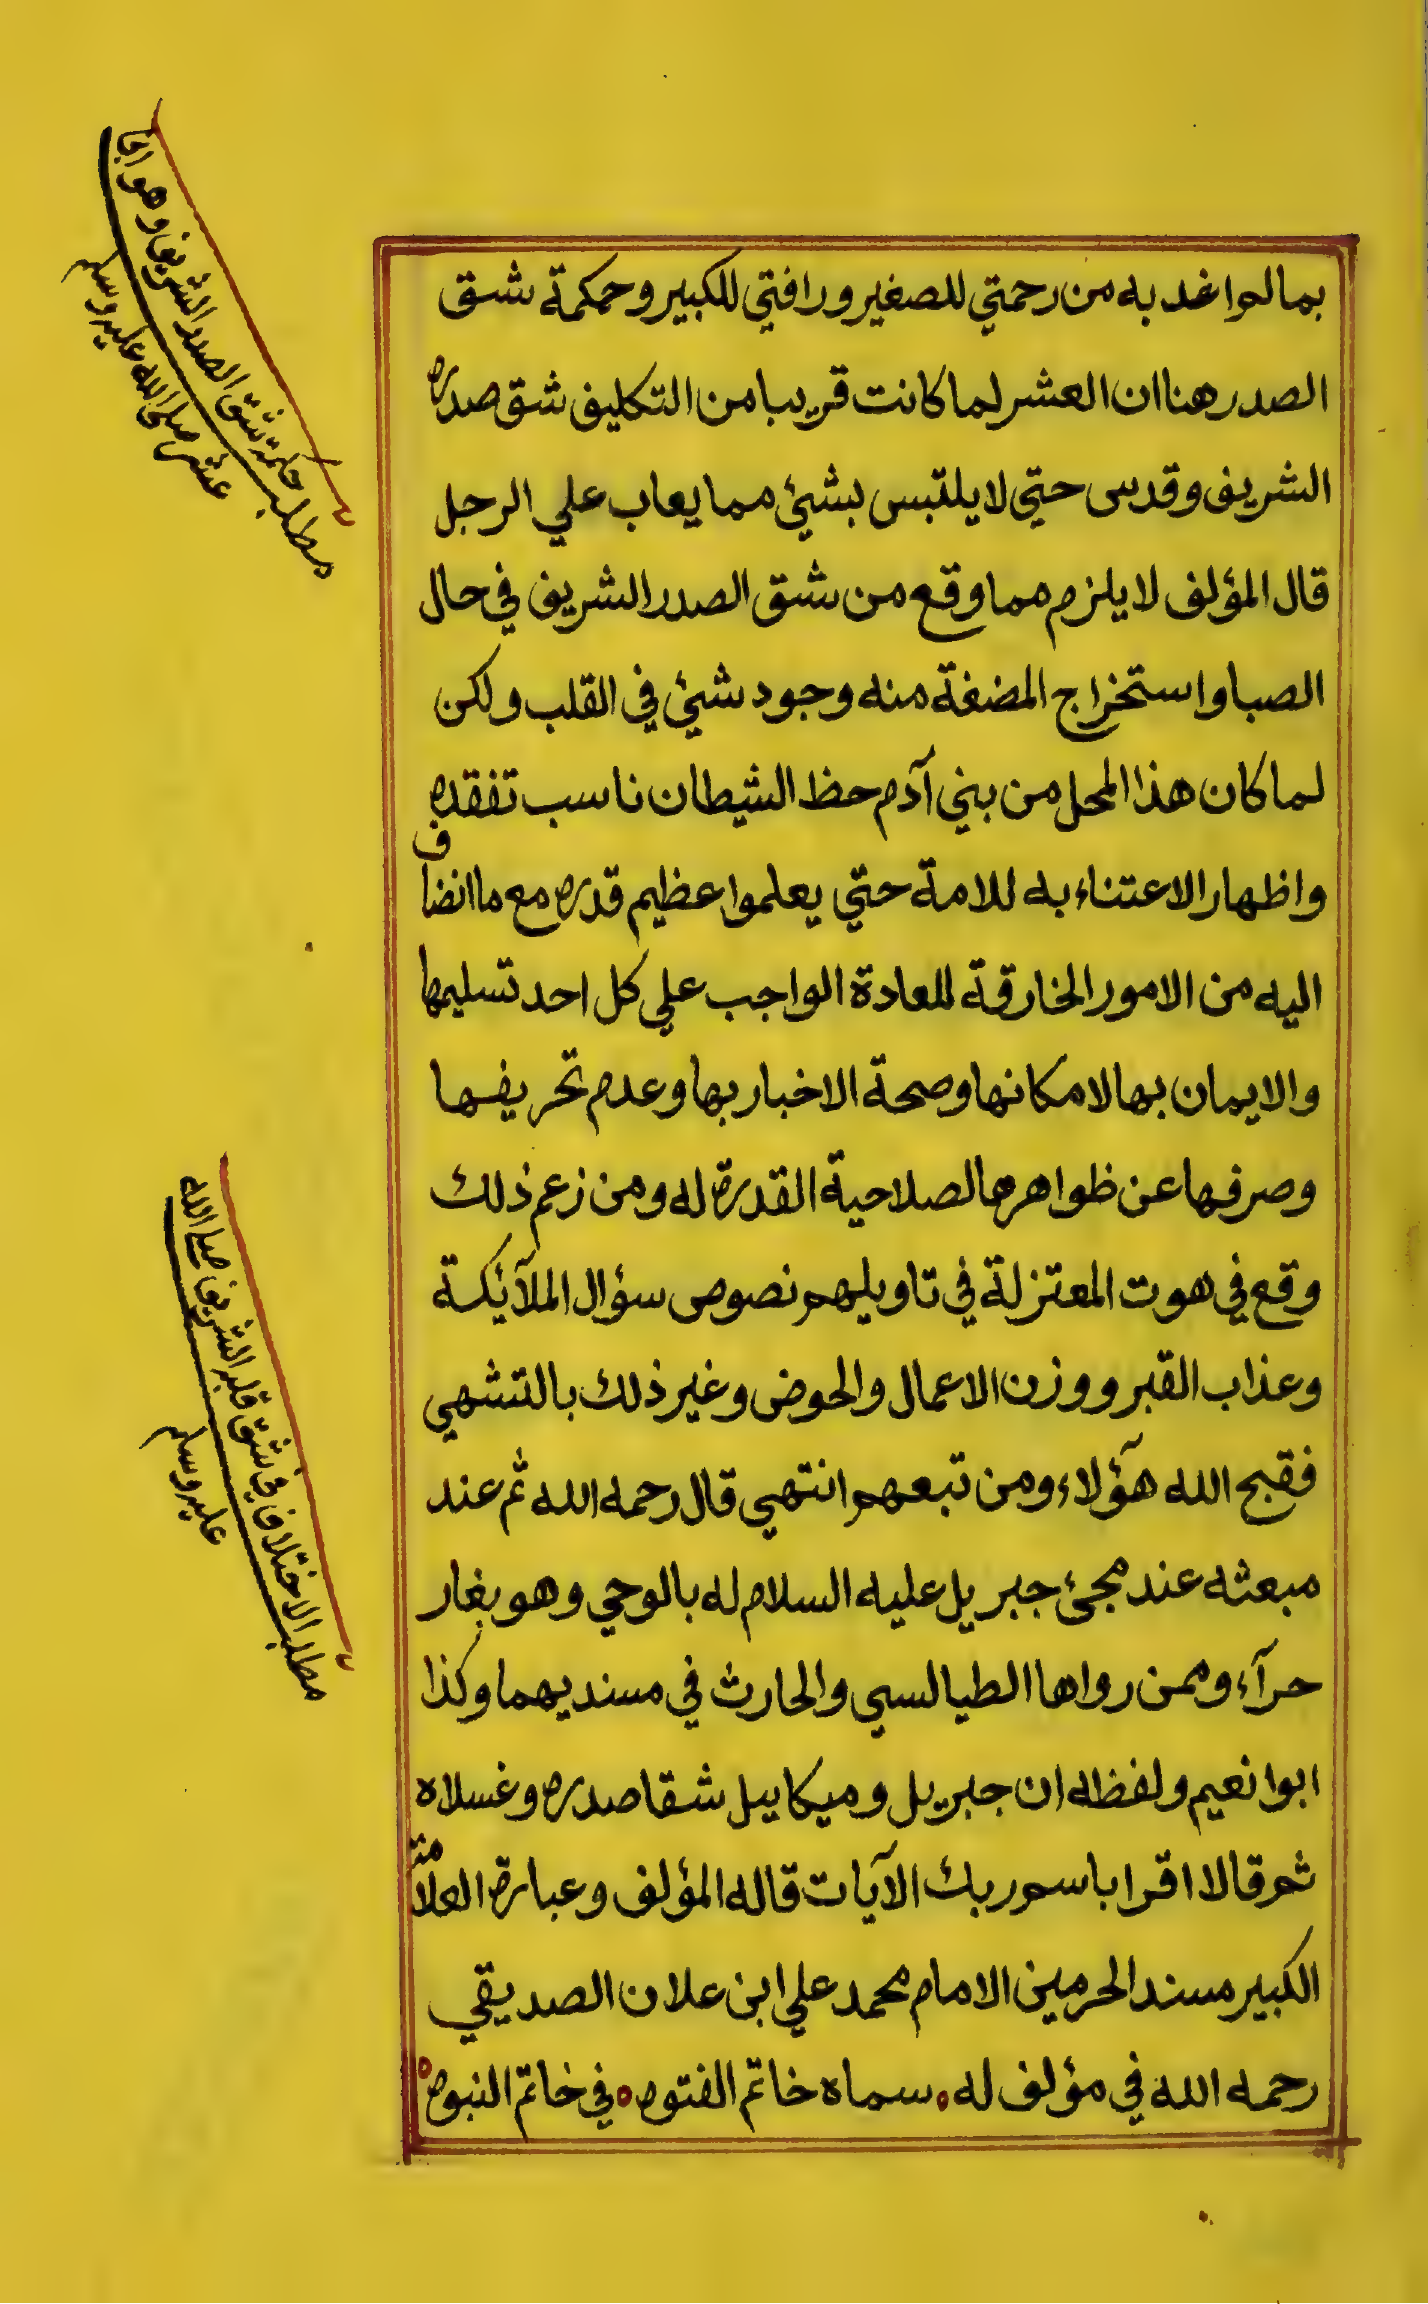 بما لم اغد به من رحمتي للصغير ورافتي للكبير وحكمة شق
الصدر هنا ان العشر لما كانت قريبا من التكليف شق صدره
الشريف وقدس حتي لا يلتبس بشيئ مما يعاب علي الرجل
قال المؤلف لا يلزم مما وقع من شق الصدر الشريف في حال
الصبا واستخراج المضغة منه وجود شيئ في القلب ولكن
لما كان هذا المحل من بني آدم حظ الشيطان ناسب تفقده
واظهار الاعتناء به للامة حتي يعلموا عظيم قدره مع ما انضاف
اليه من الامور الخارقة للعادة الواجب علي كل احد تسليمها
والايمان بها لامكانها وصحة الاخبار بها وعدم تحريفها
وصرفها عن ظواهرها لصلاحية القدرة له ومن زعم ذلك
وقع في هوت المعتزلة في تاويلهم نصوص سؤال الملآئكة
وعذاب القبر ووزن الاعمال والحوض وغير ذلك بالتشهي
فقبح الله هؤلاء ومن تبعهم انتهي قال رحمه الله ثم عند
مبعثه عند مجئ جبريل عليه السلام له بالوحي وهو بغار
حرآء وممن رواها الطيالسي والحارث في مسنديهما وكذا
ابوا نعيم ولفظه ان جبريل وميكاييل شقا صدره وغسلاه
ثم قالا اقرا باسم ربك الآيات قاله المؤلف وعبارة العلامة
الكبير مسند الحرمين الامام محمد علي ابن علان الصديقي
رحمه الله في مؤلف له سماه خاتم الفتوه في خاتم النبوه
مطلب حكمة شق الصدر الشريف وهو ابن
عشر صلي الله عليه وسلم
مطلب الاختلاف في شق قلبه الشريف صلي الله
عليه وسلم